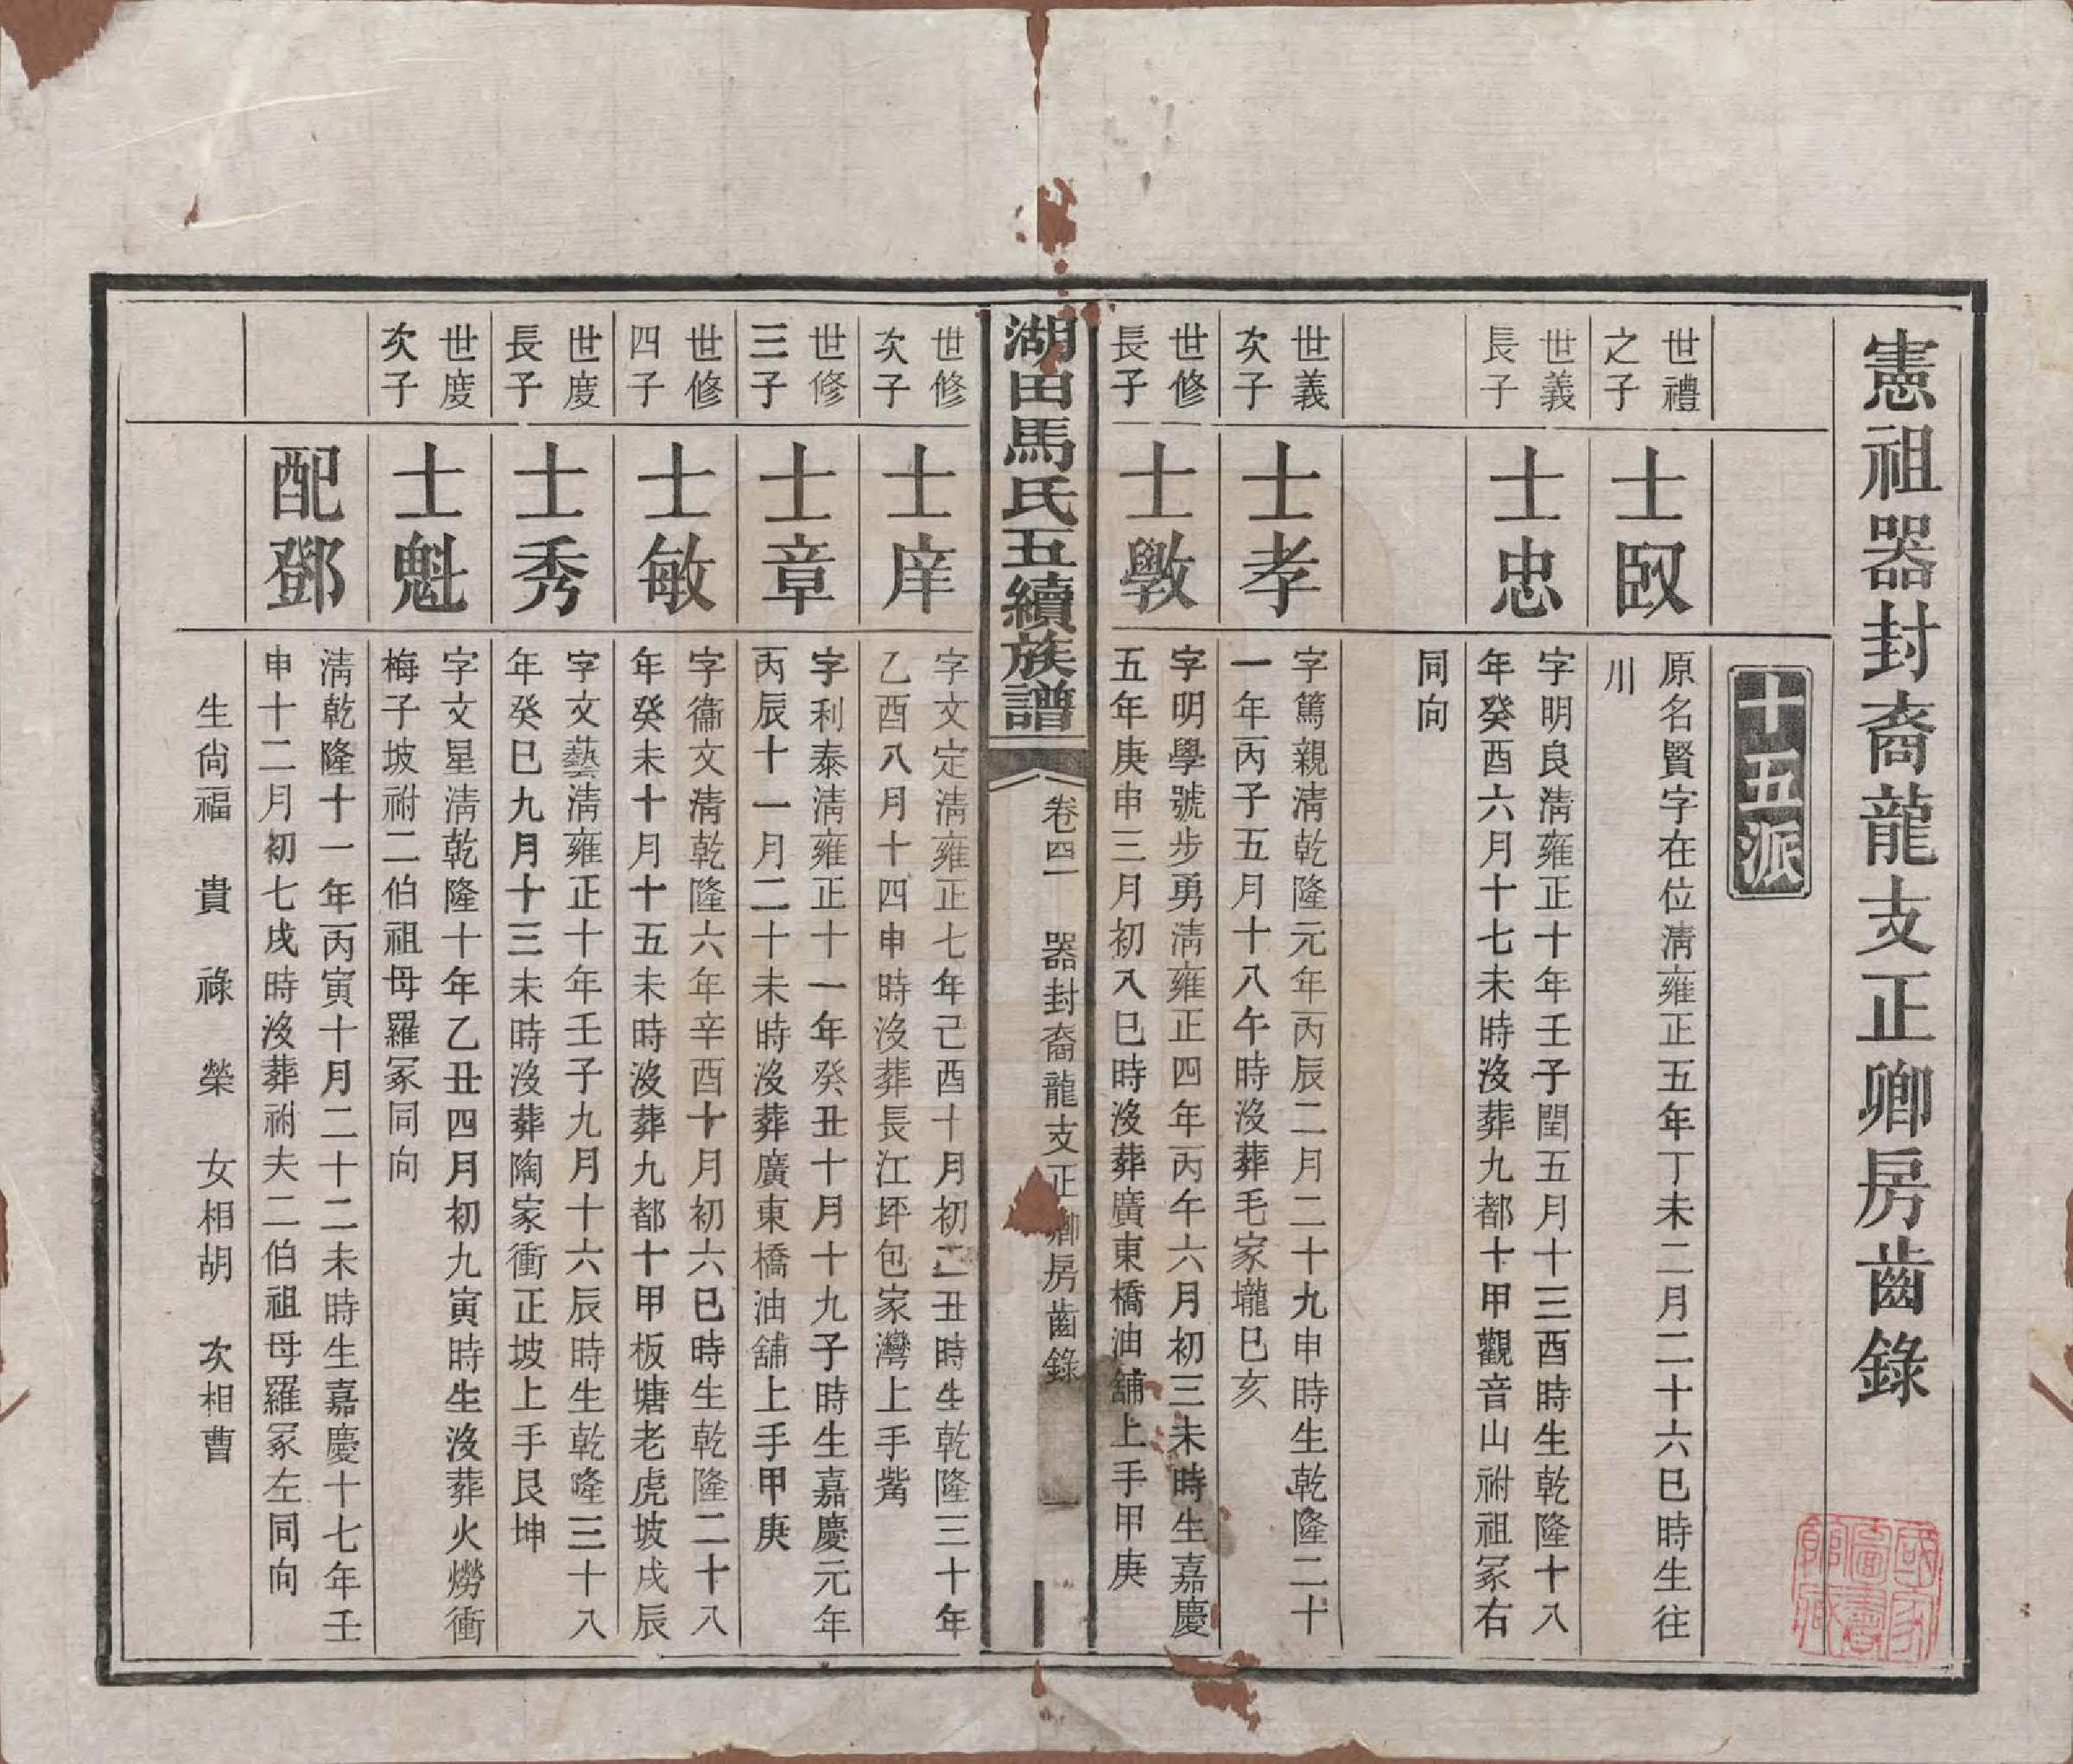 憲祖器封裔龍支正卿房齒錄
十五派
世禮
之子
士臤
原名賢字在位淸雍正五年丁未二月二十六巳時生往
川
世義
長子
士忠
字明良淸雍正十年壬子閏五月十三酉時生乾隆十八
年癸酉六月十七未時沒葬九都十甲觀音山祔祖冢右
同向
世義
次子
士孝
字篤親淸乾隆元年丙辰二月二十九申時生乾隆二十
一年丙子五月十八午時沒葬毛家壠巳亥
世修
長子
士斆
字明學號步勇淸雍正四年丙午六月初三未時生嘉慶
五年庚申三月初八巳時沒葬廣東橋油舖上手甲庚
湖田馬氏五續族譜
卷四一
器封裔龍支正卿房齒錄
一
世修
次子
士庠
字文定淸雍正七年己酉十月初二丑時生乾隆三十年
乙酉八月十四申時沒葬長江坪包家灣上手觜
世修
三子
士章
字利泰淸雍正十一年癸丑十月十九子時生嘉慶元年
丙辰十一月二十未時沒葬廣東橋油舖上手甲庚
世修
四子
士敏
字衞文淸乾隆六年辛酉十月初六巳時生乾隆二十八
年癸未十月十五未時沒葬九都十甲板塘老虎坡戌辰
世度
長子
士秀
字文藝淸雍正十年壬子九月十六辰時生乾隆三十八
年癸巳九月十三未時沒葬陶家衝正坡上手艮坤
世度
次子
士魁
字文星淸乾隆十年乙丑四月初九寅時生沒葬火燐衝
梅子坡祔二伯祖母羅冢同向
配鄧
淸乾隆十一年丙寅十月二十二未時生嘉慶十七年壬
申十二月初七戌時沒葬祔夫二伯祖母羅冢左同向
生尙福 貴 祿 榮 女相胡 次相曹
國家
圖書
館藏